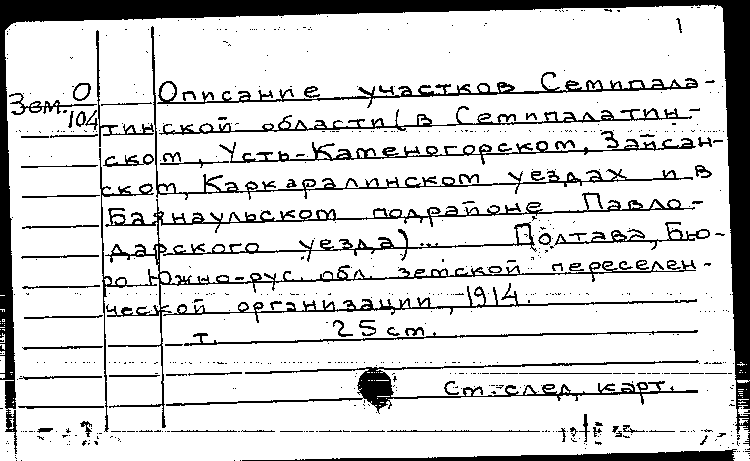 1
О
Зем.
104
Описание участков Семипала-
тинской области (в Семипалатин-
ском, Усть-Каменогорском, Зайсан-
ском, Каркаралинском уездах и в
Баянаульском подрайоне Павло-
дарского уезда)... Полтава, Бю-
ро Южно-рус. обл. земской переселен-
ческой организации, 1914.
т. 25 cm.
См. след. карт.